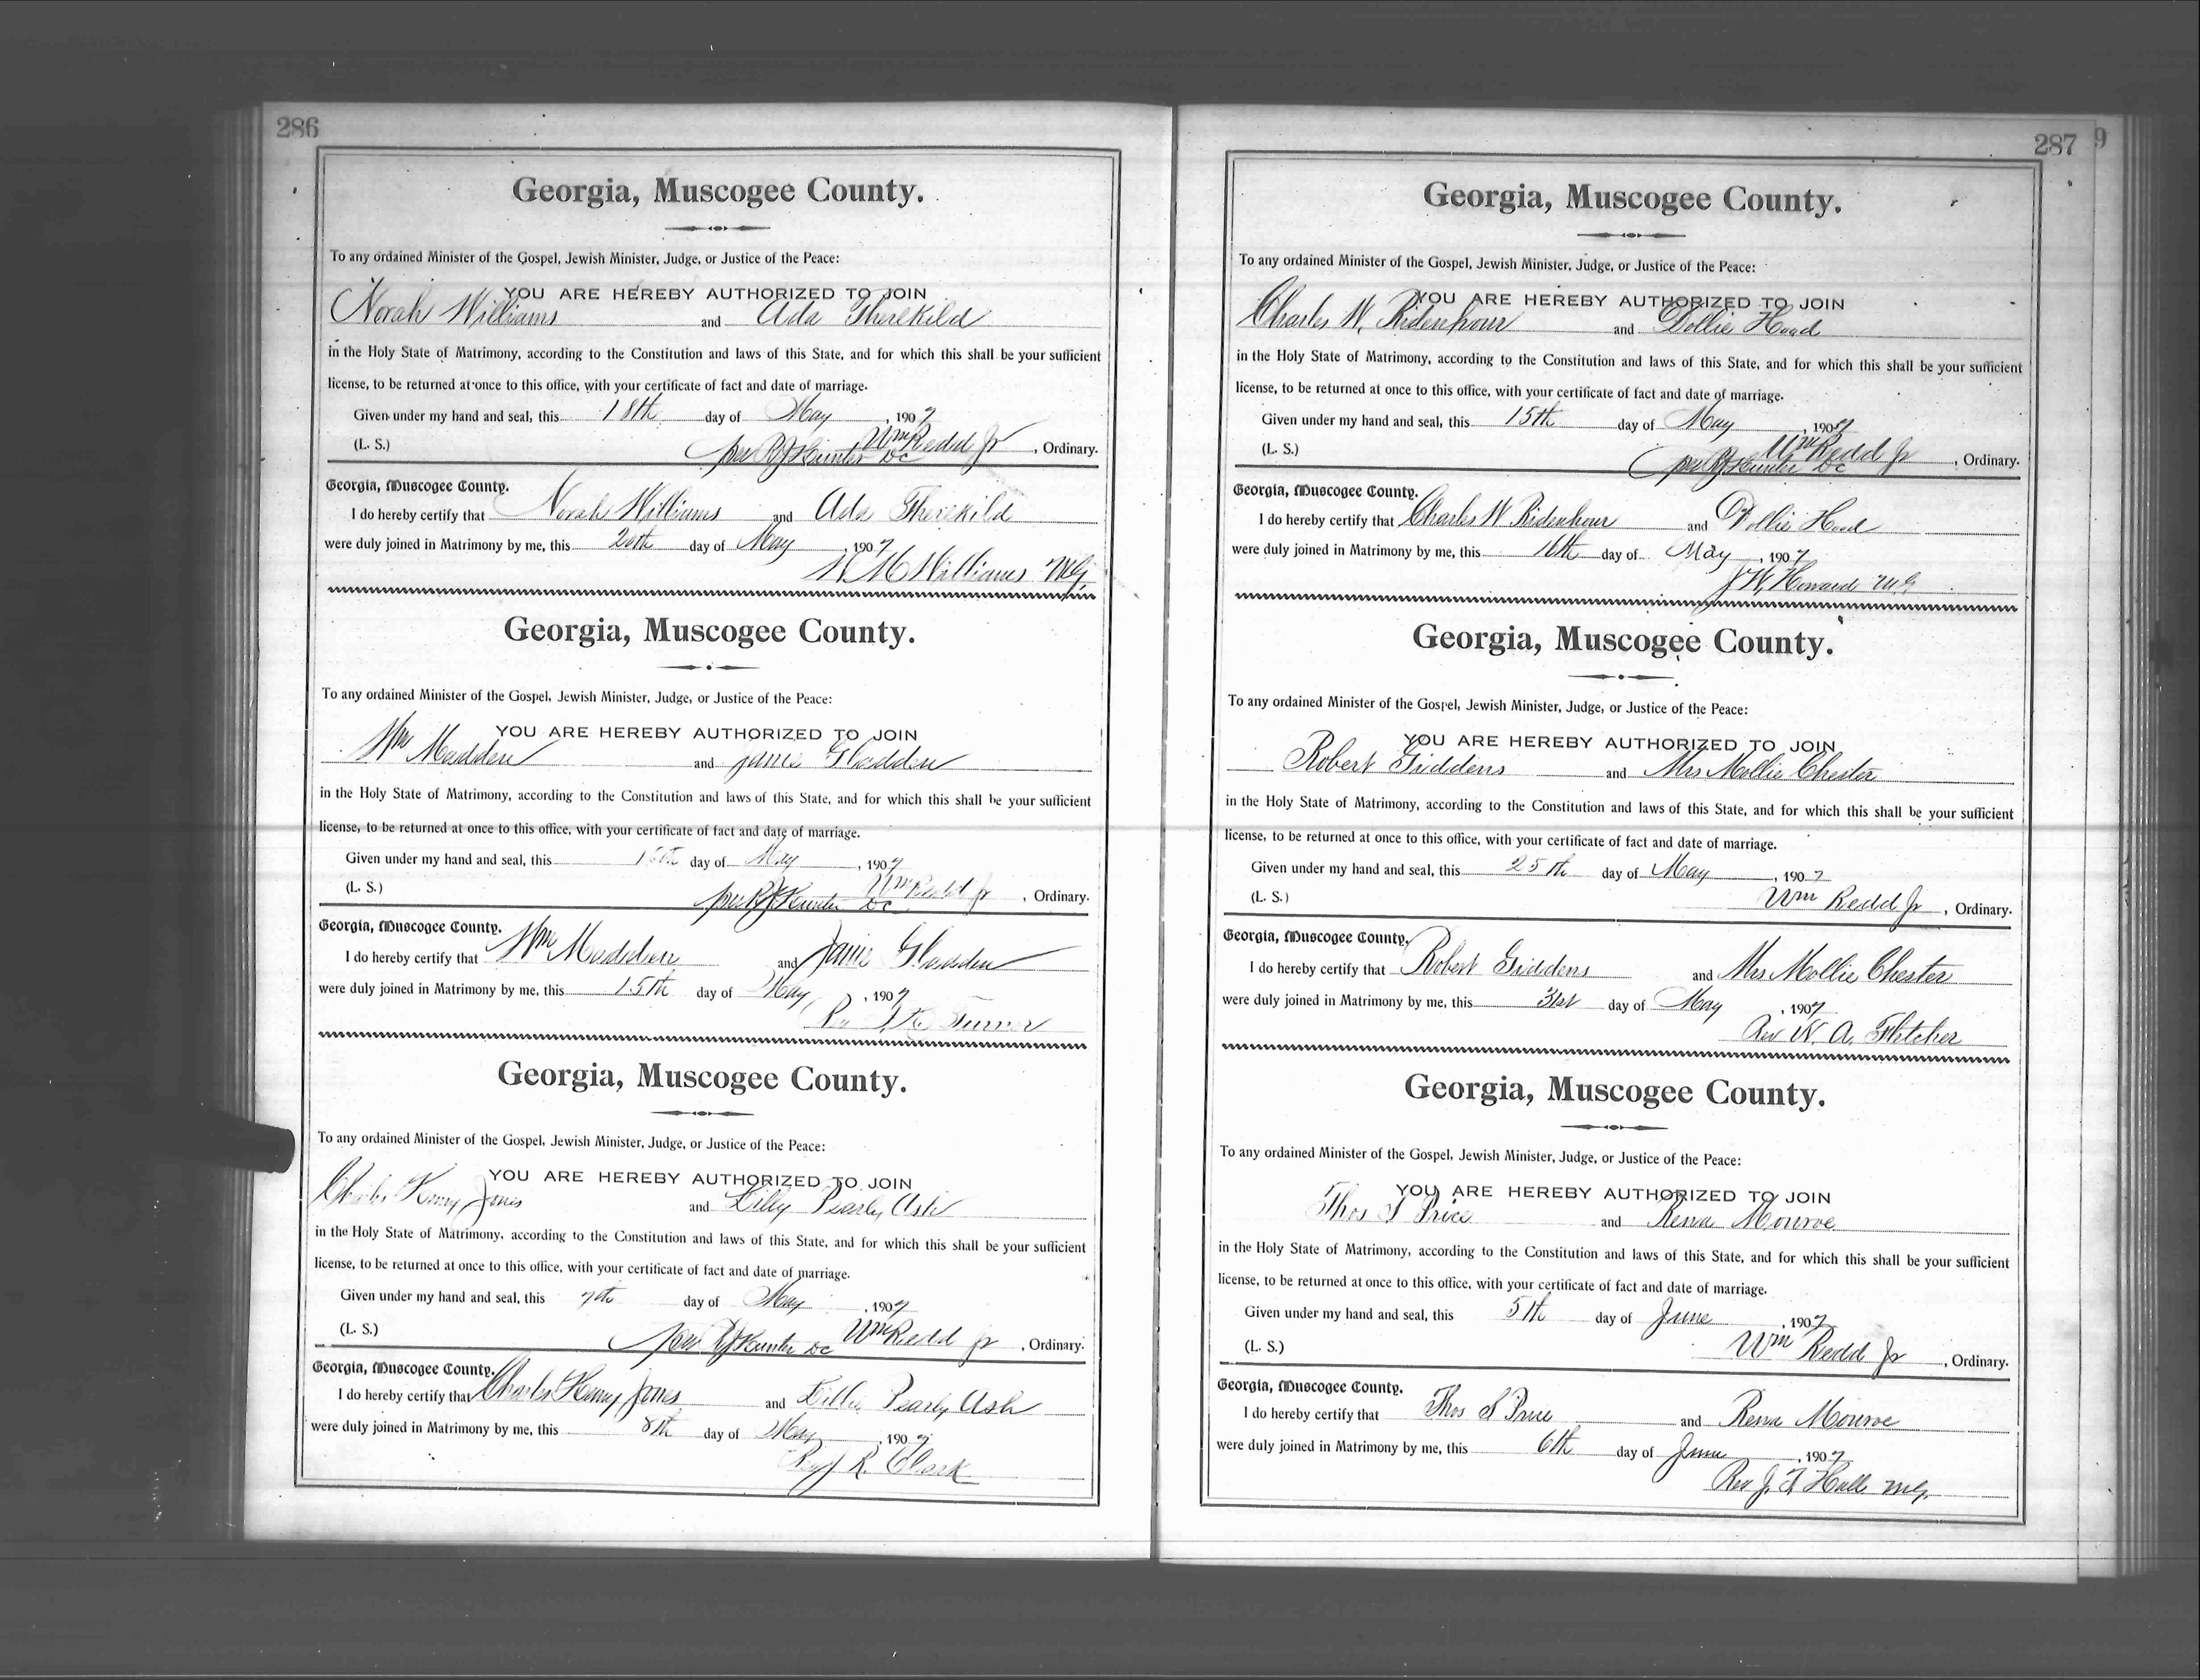 286
Georgia, Muscogee County.
To any ordained Minister of the Gospel, Jewish Minister, Judge, or Justice of the Peace:
YOU ARE HEREBY AUTHORIZED TO JOIN
Norah Williams and Ada Therekild
in the Holy State of Matrimony, according to the Constitution and laws of this State, and for which this shall be your sufficient
license, to be returned at once to this office, with your certificate of fact and date of marriage.
Given under my hand and seal, this 18th day of May, 1907
Wm Redd Jr
(L. S.) per R J Hunter DC, Ordinary.
Georgia, Muscogee County.
I do hereby certify that Norah Williams and Ada Therekild
were duly joined in Matrimony by me, this 20th day of May, 1907
M Williams MG.
Georgia, Muscogee County.
To any ordained Minister of the Gospel, Jewish Minister, Judge, or Justice of the Peace:
YOU ARE HEREBY AUTHORIZED TO JOIN
Wm Madden and Janie Gladden
in the Holy State of Matrimony, according to the Constitution and laws of this State, and for which this shall be your sufficient
license, to be returned at once to this office, with your certificate of fact and date of marriage.
Given under my hand and seal, this 15th day of May, 1907
Wm Redd Jr
(L. S.) per R J Hunter DC, Ordinary.
Georgia, Muscogee County.
I do hereby certify that Wm Madden and Janie Gladden
were duly joined in Matrimony by me, this 15th day of May, 1907
Turner
Georgia, Muscogee County.
To any ordained Minister of the Gospel, Jewish Minister, Judge, or Justice of the Peace:
YOU ARE HEREBY AUTHORIZED TO JOIN
Charles Henry Jones and Lilly Pearly Ash
in the Holy State of Matrimony, according to the Constitution and laws of this State, and for which this shall be your sufficient
license, to be returned at once to this office, with your certificate of fact and date of marriage.
Given under my hand and seal, this 7th day of May, 1907
(L. S.) per R J Hunter DC Wm Redd Jr, Ordinary.
Georgia, Muscogee County.
I do hereby certify that Charles Henry Jones and Lillie Pearly Ash
were duly joined in Matrimony by me, this 8th day of May, 1907
R. Clark
287
9
Georgia, Muscogee County.
To any ordained Minister of the Gospel, Jewish Minister, Judge, or Justice of the Peace:
YOU ARE HEREBY AUTHORIZED TO JOIN
Charles W. Ridenhour and Dollie Hood
in the Holy State of Matrimony, according to the Constitution and laws of this State, and for which this shall be your sufficient
license, to be returned at once to this office, with your certificate of fact and date of marriage.
Given under my hand and seal, this 15th day of May, 1907
Wm Redd Jr
(L. S.) per R J Hunter DC, Ordinary.
Georgia, Muscogee County.
I do hereby certify that Charles W Ridenhour and Dollie Hood
were duly joined in Matrimony by me, this 16th day of May, 1907
J W. Howard M.G.
Georgia, Muscogee County.
To any ordained Minister of the Gospel, Jewish Minister, Judge, or Justice of the Peace:
YOU ARE HEREBY AUTHORIZED TO JOIN
Robert Giddens and Mrs Mollie Chester
in the Holy State of Matrimony, according to the Constitution and laws of this State, and for which this shall be your sufficient
license, to be returned at once to this office, with your certificate of fact and date of marriage.
Given under my hand and seal, this 25th day of May, 1907
(L. S.) Wm Redd Jr, Ordinary.
Georgia, Muscogee County.
I do hereby certify that Robert Giddens and Mrs Mollie Chester
were duly joined in Matrimony by me, this 31st day of May, 1907
Rev W. A. Fletcher
Georgia, Muscogee County.
To any ordained Minister of the Gospel, Jewish Minister, Judge, or Justice of the Peace:
YOU ARE HEREBY AUTHORIZED TO JOIN
Thos S Price and Rena Monroe
in the Holy State of Matrimony, according to the Constitution and laws of this State, and for which this shall be your sufficient
license, to be returned at once to this office, with your certificate of fact and date of marriage.
Given under my hand and seal, this 5th day of June, 1907
(L. S.) Wm Redd Jr, Ordinary.
Georgia, Muscogee County.
I do hereby certify that Thos S Price and Rena Monroe
were duly joined in Matrimony by me, this 6th day of June, 1907
Rev J. F Hall M.G.